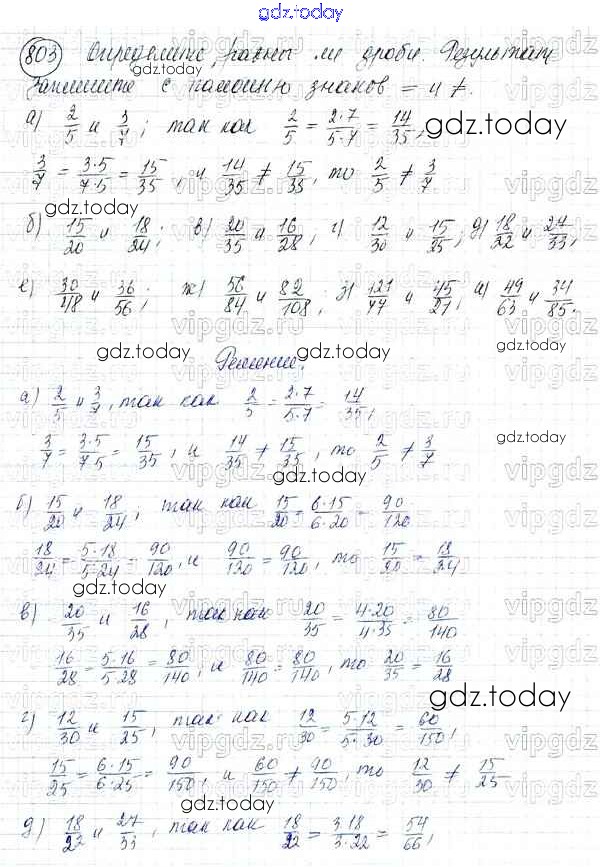 gdz.today
803 Определите, равны ли дроби. Результат
запишите с помощью знаков = и ≠.
gdz.today
а) 2/5 и 3/7; так как 2/5 = 2·7/5·7 = 14/35,
gdz.today
3/7 = 3·5/7·5 = 15/35, и 14/35 ≠ 15/35, то 2/5 ≠ 3/7
gdz.today
б) 15/20 и 18/24; в) 20/35 и 16/28; г) 12/30 и 15/25; д) 18/22 и 27/33;
е) 30/48 и 36/56; ж) 56/84 и 82/108; з) 121/77 и 45/21; и) 49/63 и 34/85.
gdz.today
gdz.today
Решение.
а) 2/5 и 3/7, так как 2/5 = 2·7/5·7 = 14/35,
gdz.today
3/7 = 3·5/7·5 = 15/35, и 14/35 ≠ 15/35, то 2/5 ≠ 3/7
б) 15/20 и 18/24; так как 15/20 = 6·15/6·20 = 90/120
18/24 = 5·18/5·24 = 90/120, и 90/120 = 90/120, то 15/20 = 18/24
gdz.today
gdz.today
в) 20/35 и 16/28, так как 20/35 = 4·20/4·35 = 80/140
16/28 = 5·16/5·28 = 80/140; и 80/140 = 80/140, то 20/35 = 16/28
gdz.today
г) 12/30 и 15/25, так как 12/30 = 5·12/5·30 = 60/150,
15/25 = 6·15/6·25 = 90/150, и 60/150 ≠ 90/150, то 12/30 ≠ 15/25
gdz.today
д) 18/22 и 27/33, так как 18/22 = 3·18/3·22 = 54/66,
vipgdz.ru